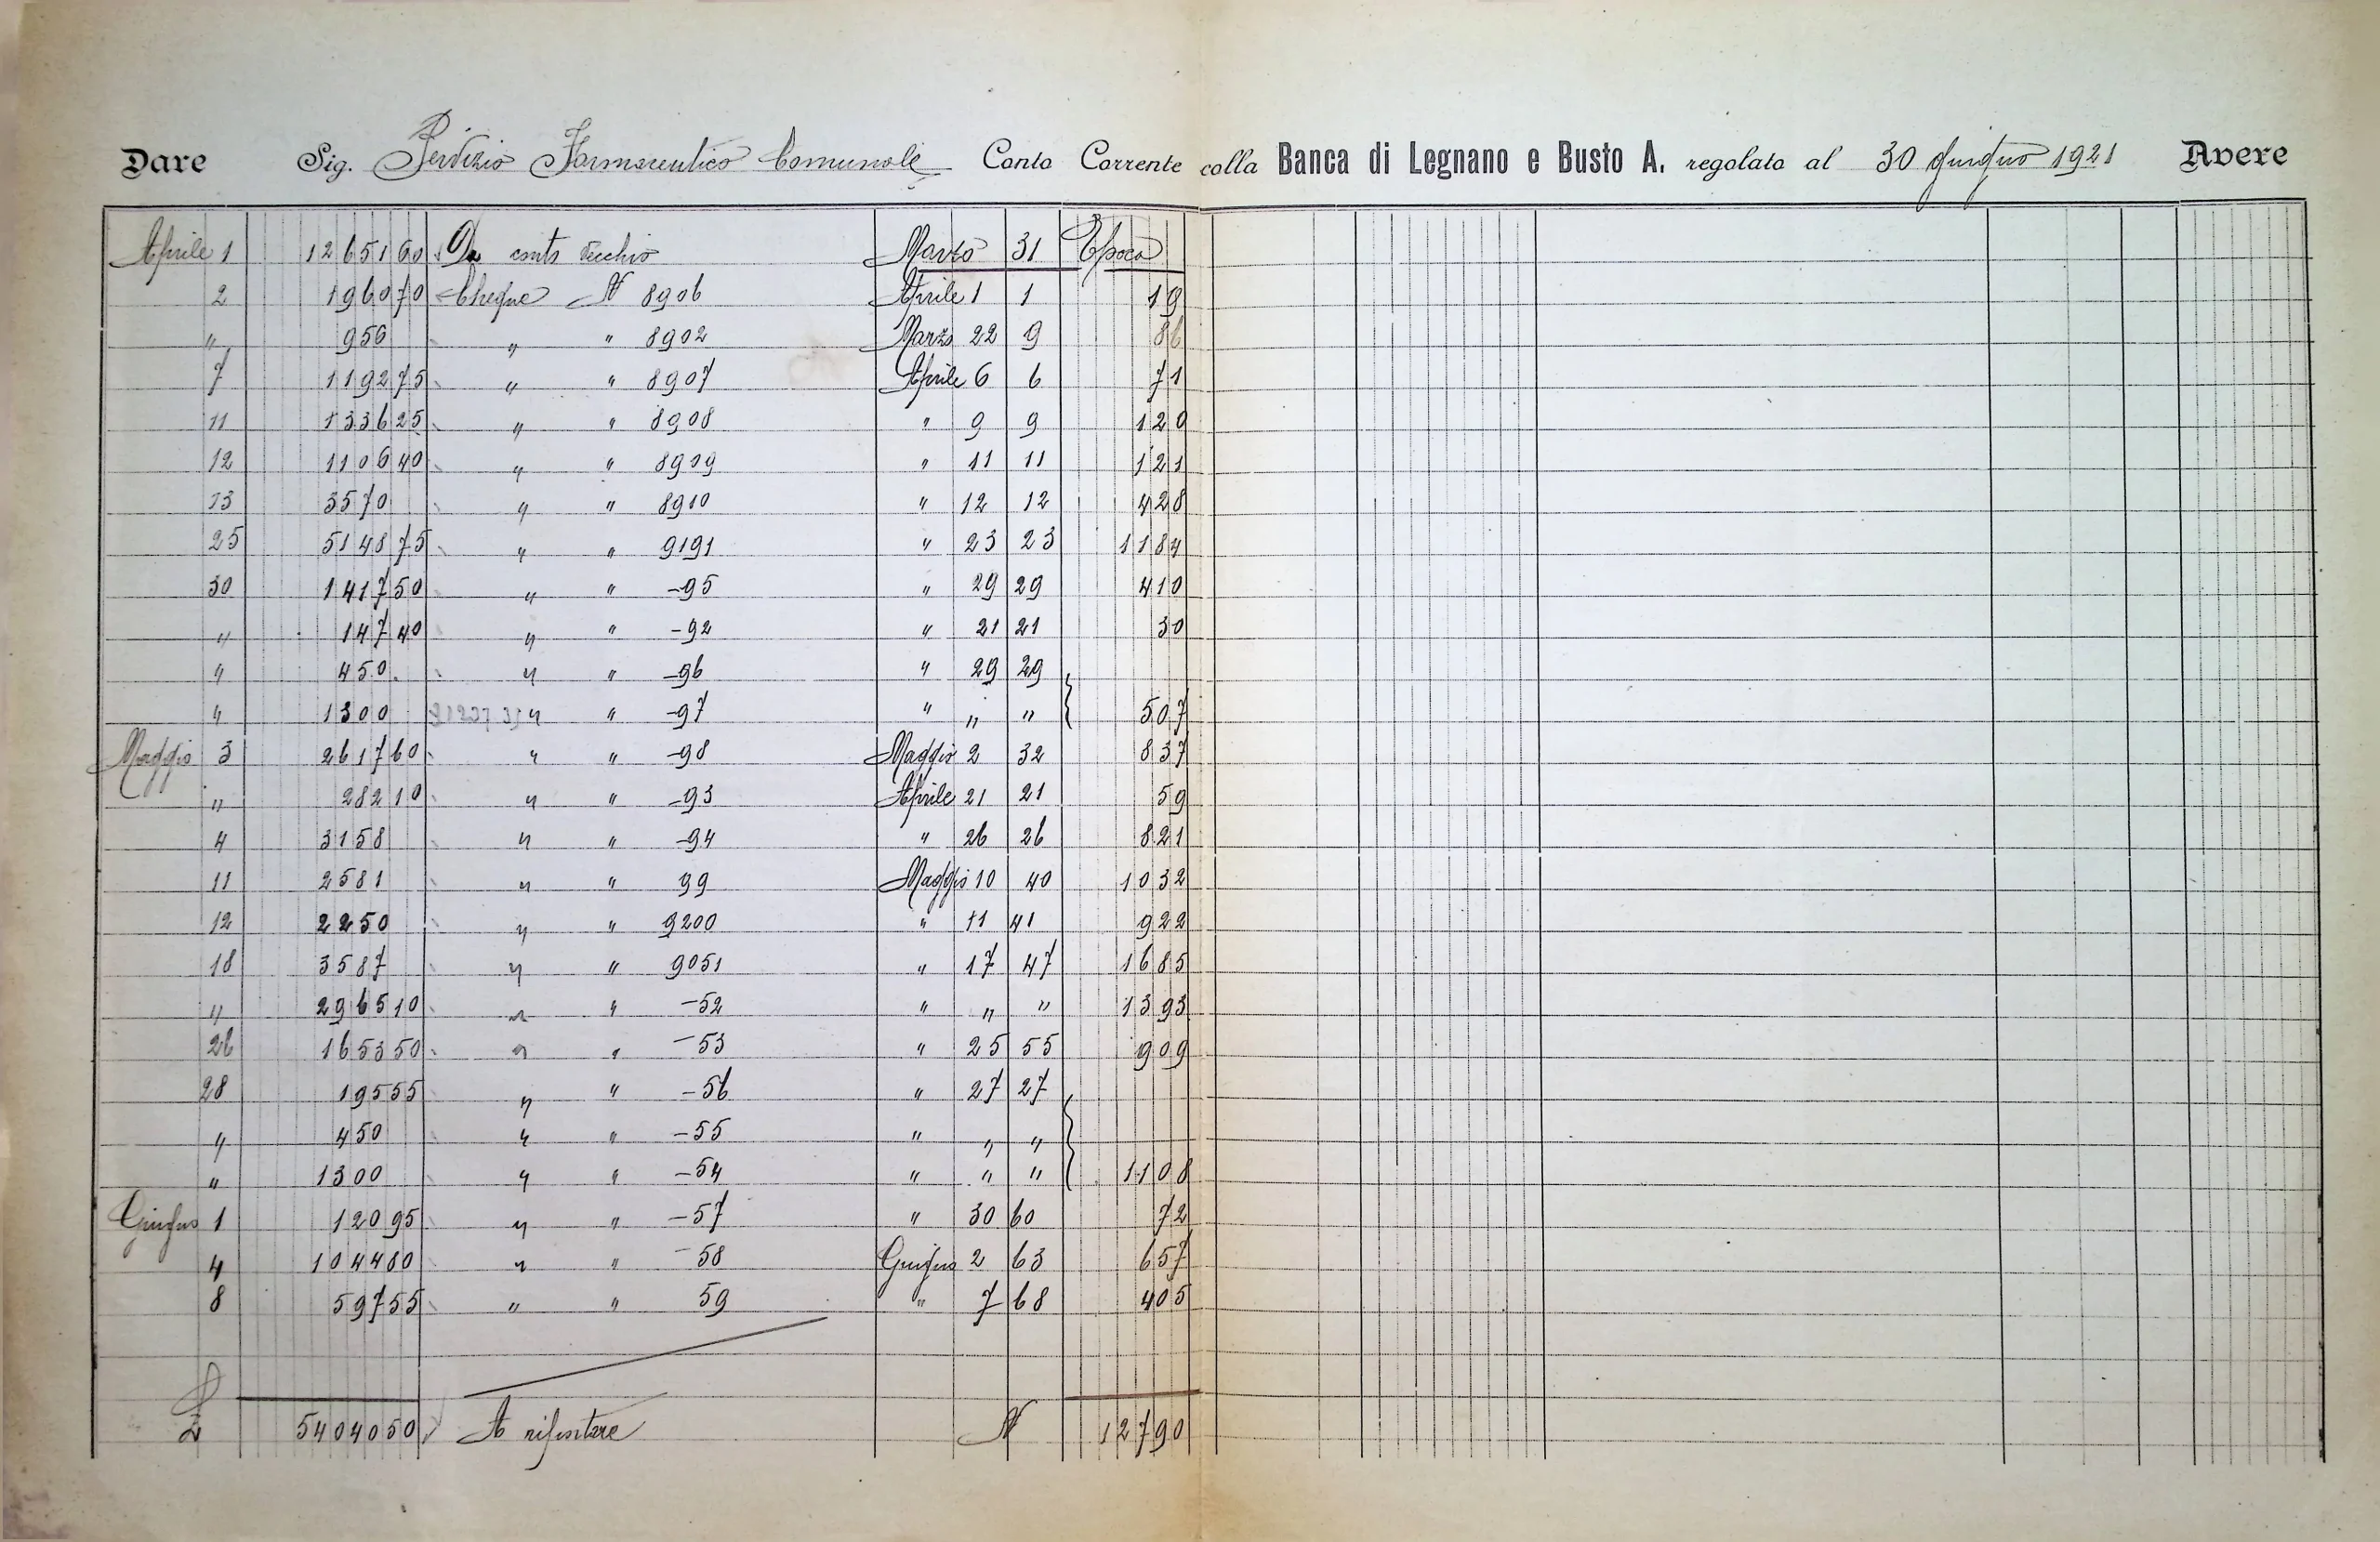 Dare Sig. Servizio Farmaceutico Comunale Conto Corrente colla Banca di Legnano e Busto A. regolato al 30 Giugno 1921 Avere
Aprile 1 12651 60 Da conto vecchio Marzo 31 Epoca
2 1960 70 Cheque N 8906 Aprile 1 1 19
" 956 " " 8902 Marzo 22 9 86
7 1192 75 " " 8907 Aprile 6 6 71
11 1336 25 " " 8908 " 9 9 120
12 1106 40 " " 8909 " 11 11 121
13 3570 " " 8910 " 12 12 428
25 5148 75 " " 9191 " 23 23 1184
30 1417 50 " " -95 " 29 29 410
" 147 40 " " -92 " 21 21 30
" 450 " " -96 " 29 29
" 1300 " " -97 " " " 507
Maggio 3 2617 60 " " -98 Maggio 2 32 837
" 282 10 " " -93 Aprile 21 21 59
4 3158 " " -94 " 26 26 821
11 2581 " " 99 Maggio 10 40 1032
12 2250 " " 9200 " 11 41 922
18 3587 " " 9051 " 17 47 1685
" 2965 10 " " -52 " " " 1393
26 1653 50 " " -53 " 25 55 909
28 195 55 " " -56 " 27 27
" 450 " " -55 " " "
" 1300 " " -54 " " " 1108
Giugno 1 120 95 " " -57 " 30 60 72
4 1044 80 " " -58 Giugno 2 63 657
8 597 55 " " 59 " 7 68 405
54040 50 A riportare N 12790